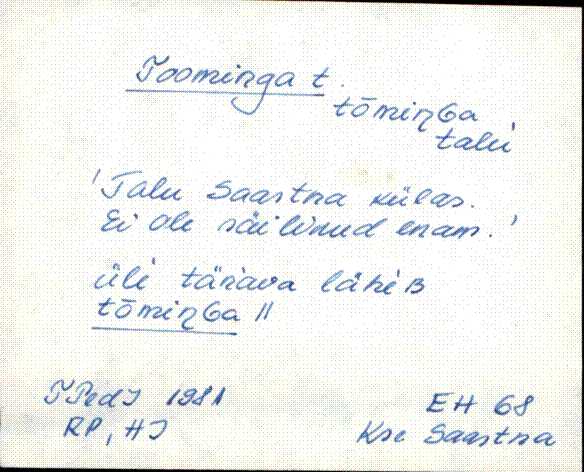 Toominga t.
tōmiŋɢa
talu
'Talu Saastna külas.
Ei ole säilinud enam.'
üli tänava läheʙ
tōmiŋɢa ||
TPedI 1981
EH 68
RP, HJ
Kse Saastna